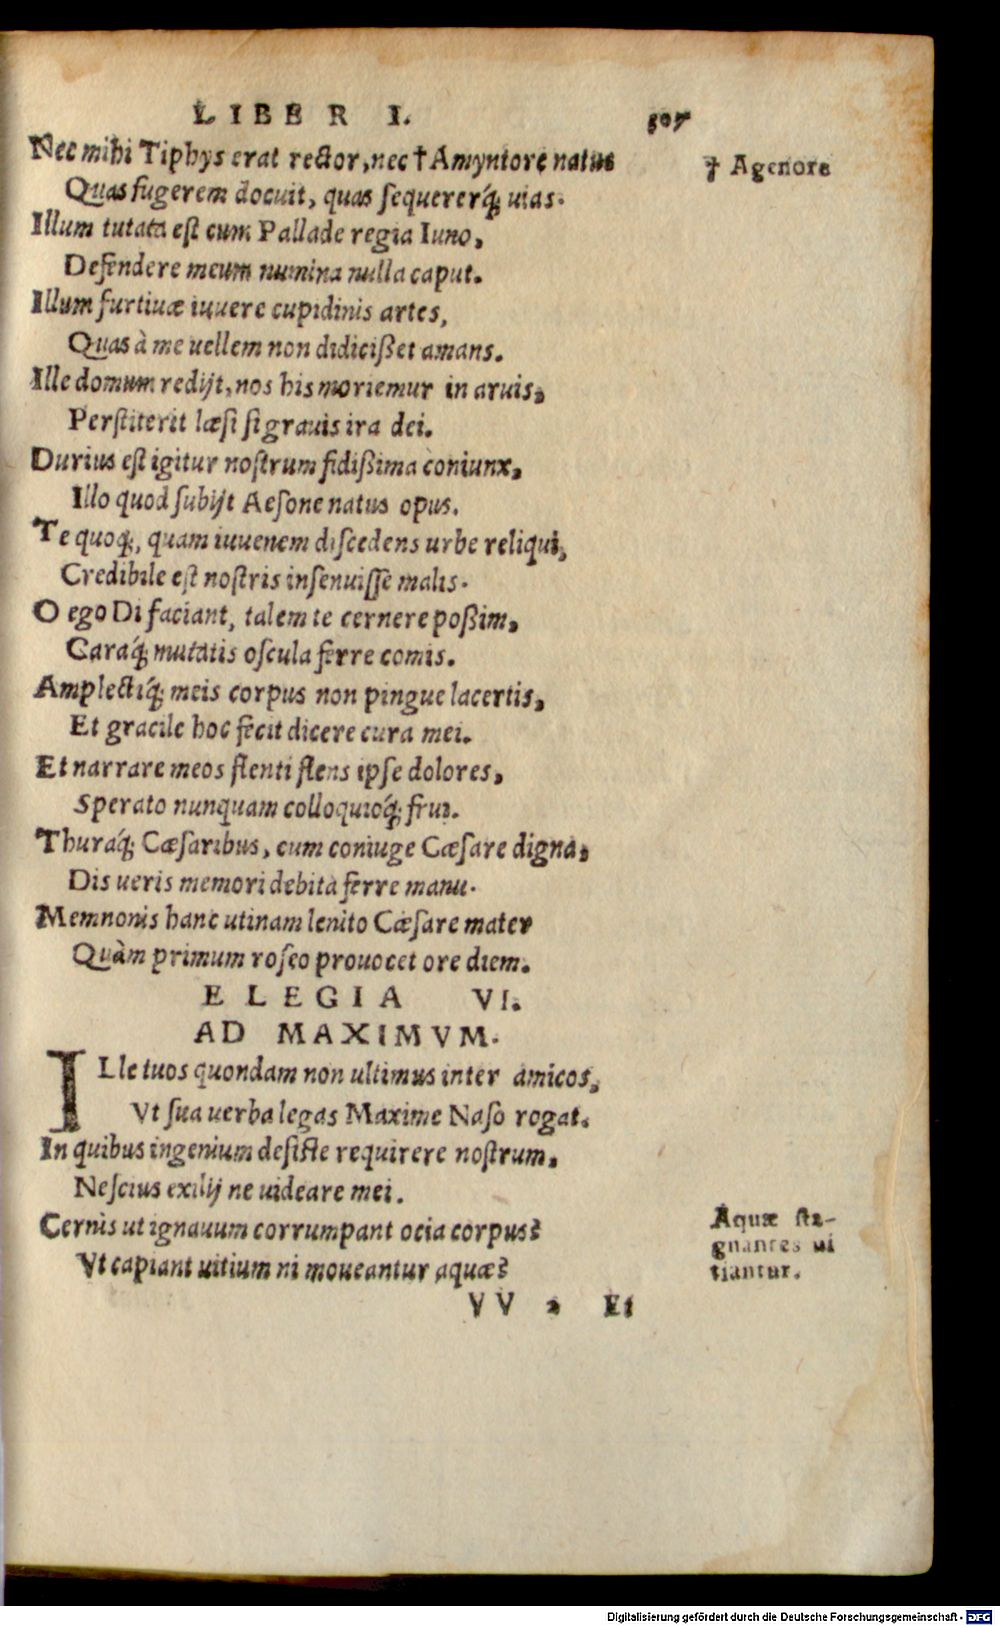 LIBER I. 307
Nec mihi Tiphys erat rector, nec † Amyntore natus
† Agenore
Quas fugerem docuit, quas sequererq́; uias.
Illum tutata est cum Pallade regia Iuno,
Defendere meum numina nulla caput.
Illum furtiuæ iuuere cupidinis artes,
Quas à me uellem non didicißet amans.
Ille domum redijt, nos his moriemur in aruis,
Perstiterit læsi si grauis ira dei.
Durius est igitur nostrum fidißima coniunx,
Illo quod subijt Aesone natus opus.
Te quoq;, quam iuuenem discedens urbe reliqui,
Credibile est nostris insenuisse malis.
O ego Di faciant, talem te cernere poßim,
Caraq́; mutatis oscula ferre comis.
Amplectiq́; meis corpus non pingue lacertis,
Et gracile hoc fecit dicere cura mei.
Et narrare meos flenti flens ipse dolores,
Sperato nunquam colloquioq́; frui.
Thuraq́; Cæsaribus, cum coniuge Cæsare digna,
Dis ueris memori debita ferre manu.
Memnonis hanc utinam lenito Cæsare mater
Quàm primum roseo prouocet ore diem.
ELEGIA VI.
AD MAXIMVM.
ILle tuos quondam non ultimus inter amicos,
Vt sua uerba legas Maxime Naso rogat.
In quibus ingenium desiste requirere nostrum,
Nescius exilij ne uideare mei.
Cernis ut ignauum corrumpant ocia corpus?
Vt capiant uitium ni moueantur aquæ?
Aquæ sta-
gnantes ui
tiantur.
VV 2 Et
Digitalisierung gefördert durch die Deutsche Forschungsgemeinschaft - DFG